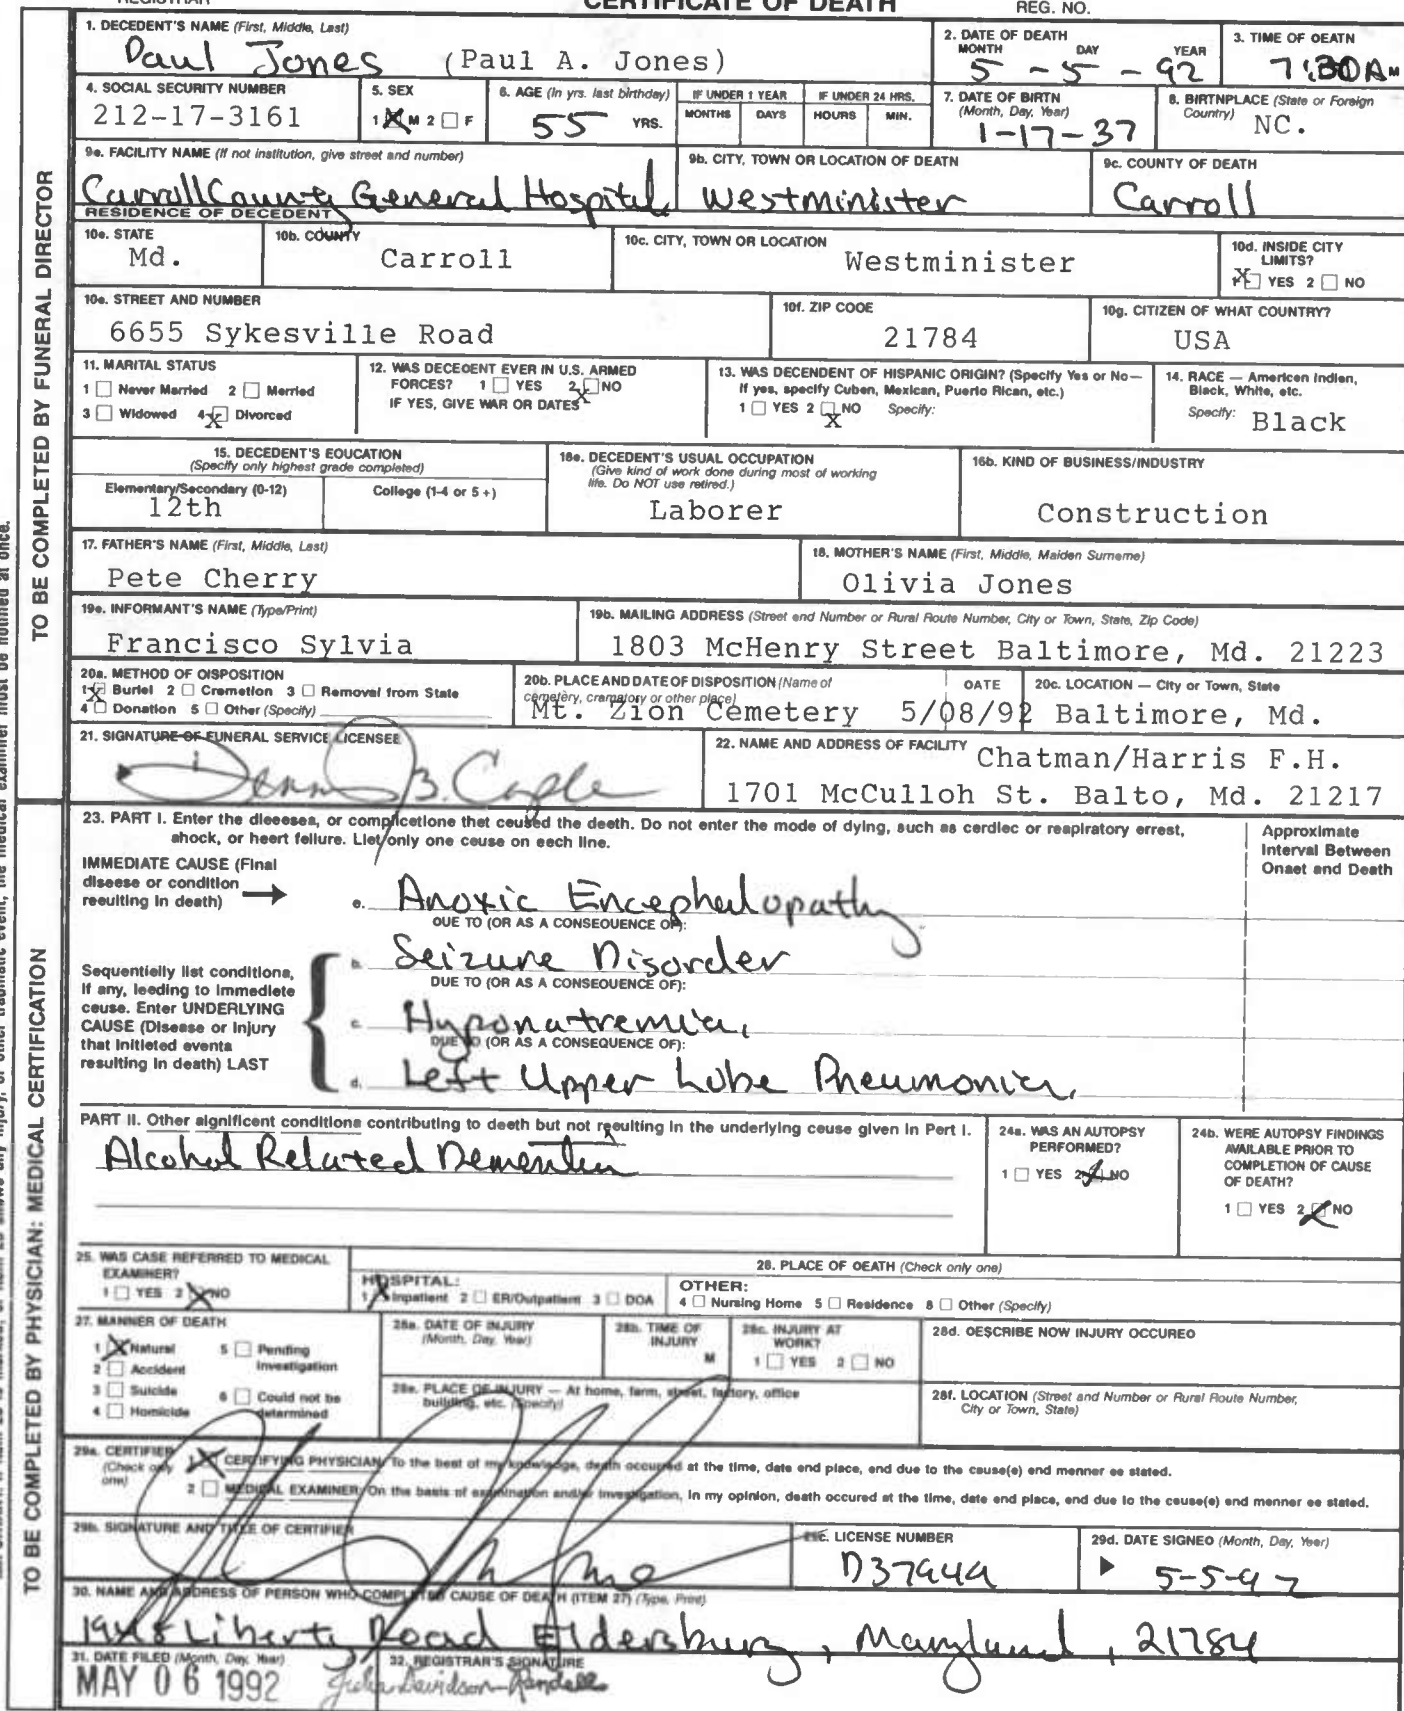 REGISTRAR CERTIFICATE OF DEATH REG. NO.
TO BE COMPLETED BY FUNERAL DIRECTOR
1. DECEDENT'S NAME (First, Middle, Last)
Paul Jones (Paul A. Jones)
2. DATE OF DEATH
MONTH DAY YEAR
5 - 5 - 92
3. TIME OF DEATH
7:30 AM
4. SOCIAL SECURITY NUMBER
212-17-3161
5. SEX
1 X M 2 □ F
6. AGE (In yrs. last birthday)
55 YRS.
IF UNDER 1 YEAR
MONTHS DAYS
IF UNDER 24 HRS.
HOURS MIN.
7. DATE OF BIRTH
(Month, Day, Year)
1-17-37
8. BIRTHPLACE (State or Foreign Country)
NC.
9a. FACILITY NAME (If not institution, give street and number)
Carroll County General Hospital
9b. CITY, TOWN OR LOCATION OF DEATH
Westminister
9c. COUNTY OF DEATH
Carroll
RESIDENCE OF DECEDENT
10a. STATE
Md.
10b. COUNTY
Carroll
10c. CITY, TOWN OR LOCATION
Westminister
10d. INSIDE CITY LIMITS?
1 X YES 2 □ NO
10e. STREET AND NUMBER
6655 Sykesville Road
10f. ZIP CODE
21784
10g. CITIZEN OF WHAT COUNTRY?
USA
11. MARITAL STATUS
1 □ Never Married 2 □ Married
3 □ Widowed 4 X Divorced
12. WAS DECEDENT EVER IN U.S. ARMED
FORCES? 1 □ YES 2 X NO
IF YES, GIVE WAR OR DATES
13. WAS DECENDENT OF HISPANIC ORIGIN? (Specify Yes or No—
If yes, specify Cuben, Mexican, Puerto Rican, etc.)
1 □ YES 2 X NO Specify:
14. RACE — American Indien,
Black, White, etc.
Specify: Black
15. DECEDENT'S EDUCATION
(Specify only highest grade completed)
Elementary/Secondary (0-12) College (1-4 or 5 +)
12th
16a. DECEDENT'S USUAL OCCUPATION
(Give kind of work done during most of working
life. Do NOT use retired.)
Laborer
16b. KIND OF BUSINESS/INDUSTRY
Construction
17. FATHER'S NAME (First, Middle, Last)
Pete Cherry
18. MOTHER'S NAME (First, Middle, Maiden Surname)
Olivia Jones
19a. INFORMANT'S NAME (Type/Print)
Francisco Sylvia
19b. MAILING ADDRESS (Street and Number or Rural Route Number, City or Town, State, Zip Code)
1803 McHenry Street Baltimore, Md. 21223
20a. METHOD OF DISPOSITION
1 X Burial 2 □ Cremation 3 □ Removal from State
4 □ Donation 5 □ Other (Specify)
20b. PLACE AND DATE OF DISPOSITION (Name of
cemetery, crematory or other place) DATE
Mt. Zion Cemetery 5/08/92
20c. LOCATION — City or Town, State
Baltimore, Md.
21. SIGNATURE OF FUNERAL SERVICE LICENSEE
22. NAME AND ADDRESS OF FACILITY Chatman/Harris F.H.
1701 McCulloh St. Balto, Md. 21217
TO BE COMPLETED BY PHYSICIAN: MEDICAL CERTIFICATION
23. PART I. Enter the diseases, or complications that caused the death. Do not enter the mode of dying, such as cardiac or respiratory arrest,
shock, or heart failure. List only one cause on each line.
Approximate
Interval Between
Onset and Death
IMMEDIATE CAUSE (Final
disease or condition
resulting in death)
a. Anoxic Encephalopathy
DUE TO (OR AS A CONSEQUENCE OF):
Sequentially list conditions,
if any, leading to immediate
cause. Enter UNDERLYING
CAUSE (Disease or injury
that initiated events
resulting in death) LAST
b. Seizure Disorder
DUE TO (OR AS A CONSEQUENCE OF):
c. Hyponatremia,
DUE TO (OR AS A CONSEQUENCE OF):
d. Left Upper Lobe Pneumonia,
PART II. Other significant conditions contributing to death but not resulting in the underlying cause given in Part I.
Alcohol Related Dementia
24a. WAS AN AUTOPSY
PERFORMED?
1 □ YES 2 X NO
24b. WERE AUTOPSY FINDINGS
AVAILABLE PRIOR TO
COMPLETION OF CAUSE
OF DEATH?
1 □ YES 2 X NO
25. WAS CASE REFERRED TO MEDICAL
EXAMINER?
1 □ YES 2 X NO
26. PLACE OF DEATH (Check only one)
HOSPITAL:
1 X Inpatient 2 □ ER/Outpatient 3 □ DOA
OTHER:
4 □ Nursing Home 5 □ Residence 6 □ Other (Specify)
27. MANNER OF DEATH
1 X Natural 5 □ Pending
2 □ Accident Investigation
3 □ Suicide 6 □ Could not be
4 □ Homicide determined
28a. DATE OF INJURY
(Month, Day, Year)
28b. TIME OF
INJURY
M
28c. INJURY AT
WORK?
1 □ YES 2 □ NO
28d. DESCRIBE HOW INJURY OCCURED
28e. PLACE OF INJURY — At home, farm, street, factory, office
building, etc. (Specify)
28f. LOCATION (Street and Number or Rural Route Number,
City or Town, State)
29a. CERTIFIER
(Check only
one)
1 X CERTIFYING PHYSICIAN: To the best of my knowledge, death occurred at the time, date and place, and due to the cause(s) and manner as stated.
2 □ MEDICAL EXAMINER: On the basis of examination and/or investigation, in my opinion, death occured at the time, date and place, and due to the cause(s) and manner as stated.
29b. SIGNATURE AND TITLE OF CERTIFIER
29c. LICENSE NUMBER
D37949
29d. DATE SIGNED (Month, Day, Year)
5-5-92
30. NAME AND ADDRESS OF PERSON WHO COMPLETED CAUSE OF DEATH (ITEM 27) (Type, Print)
Liberty Road Eldersburg, Maryland, 21784
31. DATE FILED (Month, Day, Year)
MAY 06 1992
32. REGISTRAR'S SIGNATURE
Julia Davidson-Randall